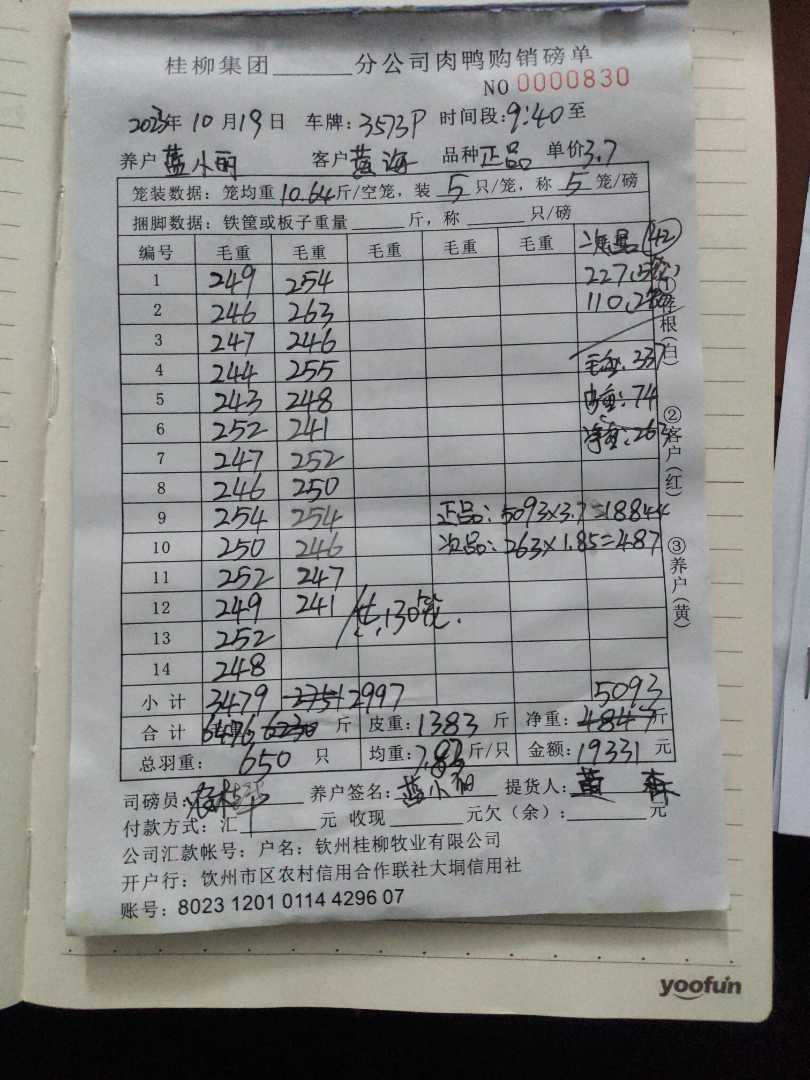 桂柳集团______分公司肉鸭购销磅单
NO 0000830
2023年 10 月 19 日 车牌: 3573P 时间段: 9:40 至
养户 蓝小丽 客户 黄海 品种 正品 单价 3.7
笼装数据: 笼均重 10.64 斤/空笼, 装 5 只/笼, 称 5 笼/磅
捆脚数据: 铁筐或板子重量______斤, 称______只/磅
编号 毛重 毛重 毛重 毛重 毛重 42
1 249 254 227.5
2 246 263 110.2
3 247 246
4 244 255 毛重: 337
5 243 248 皮重: 74
6 252 241 净重: 263
7 247 252
8 246 250
9 254 254 正品: 5093×3.7=18844
10 250 246 次品: 263×1.85=487
11 252 247
12 249 241 130笼.
13 252
14 248
小计 3479 2751 2997 5093
合计 6476 6230 斤 皮重: 1383 斤 净重: 4847 斤
总羽重: 650 只 均重: 7.82 斤/只 金额: 19331 元
司磅员: 养户签名: 蓝小丽 提货人: 黄
付款方式: 汇______元 收现______元欠(余):______元
公司汇款帐号: 户名: 钦州桂柳牧业有限公司
开户行: 钦州市区农村信用合作联社大垌信用社
账号: 8023 1201 0114 4296 07
①存根(白)
②客户(红)
③养户(黄)
yoofun